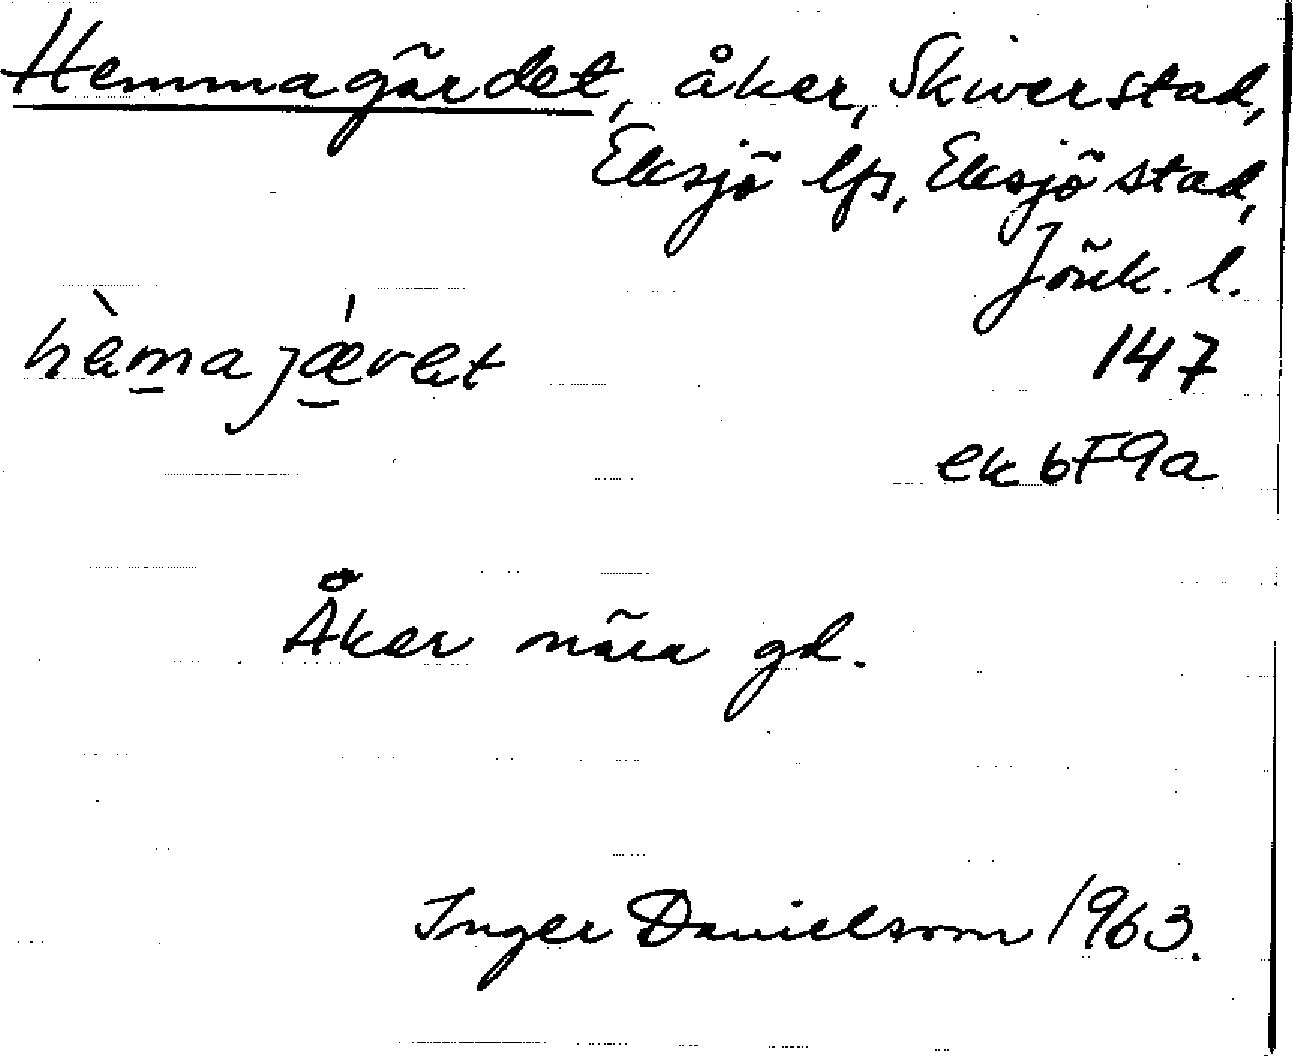 Hemmagärdet, åker, Skiverstad,
Eksjö lfs, Eksjö stad,
Jönk. l.
hèma jǽret 147
ek 6F9a
Åker nära gd.
Inger Danielsson 1963.